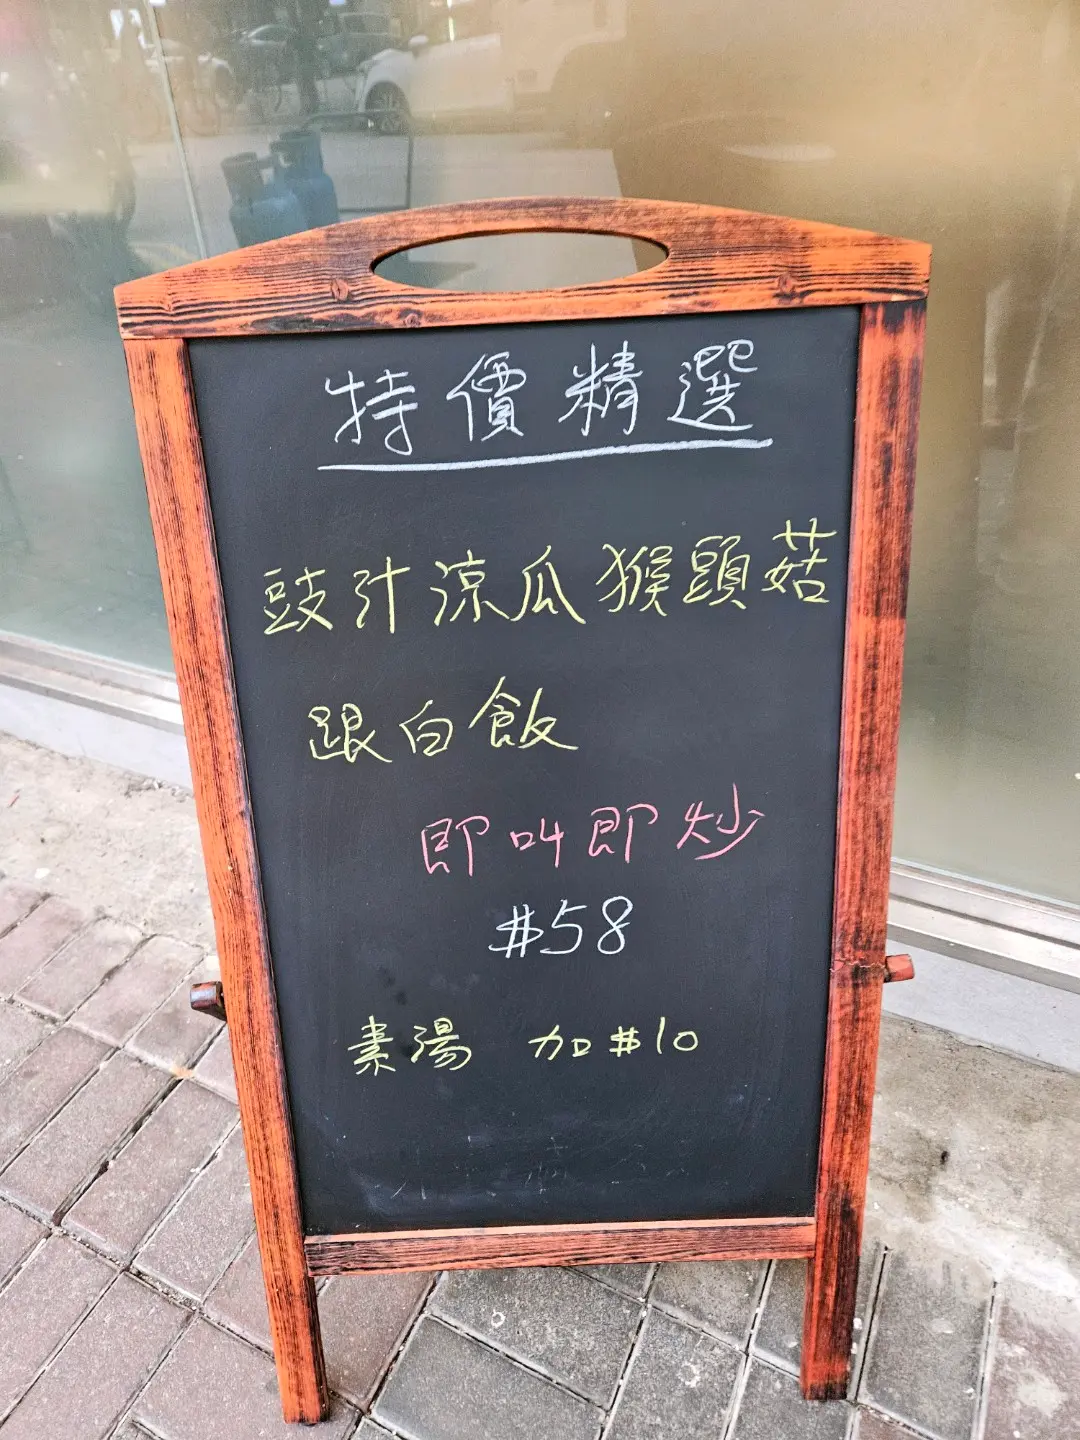 特價精選
豉汁涼瓜猴頭菇
跟白飯
即叫即炒
#58
素湯 加#10